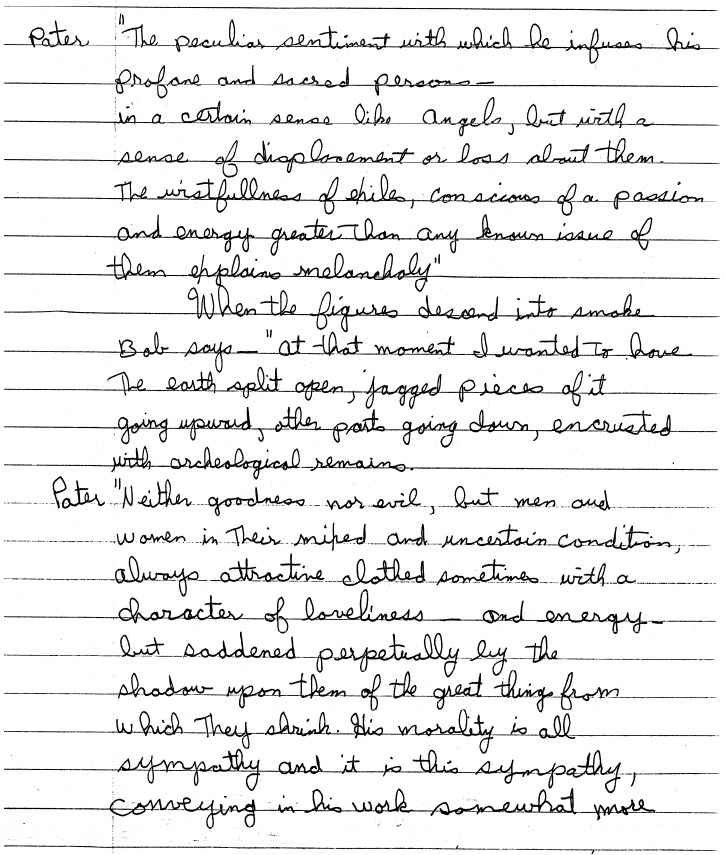 Pater "The peculiar sentiment with which he infuses his
profane and sacred persons—
in a certain sense like angels, but with a
sense of displacement or loss about them.
The wistfullness of exiles, conscious of a passion
and energy greater than any known issue of
them explains melancholy"
When the figures descend into smoke
Bob says — "at that moment I wanted to have
the earth split open, jagged pieces of it
going upward, other parts going down, encrusted
with archeological remains.
Pater "Neither goodness nor evil, but men and
women in their mixed and uncertain condition,
always attractive clothed sometimes with a
character of loveliness — and energy—
but saddened perpetually by the
shadow upon them of the great things from
which they shrink. His morality is all
sympathy and it is this sympathy,
conveying in his work somewhat more